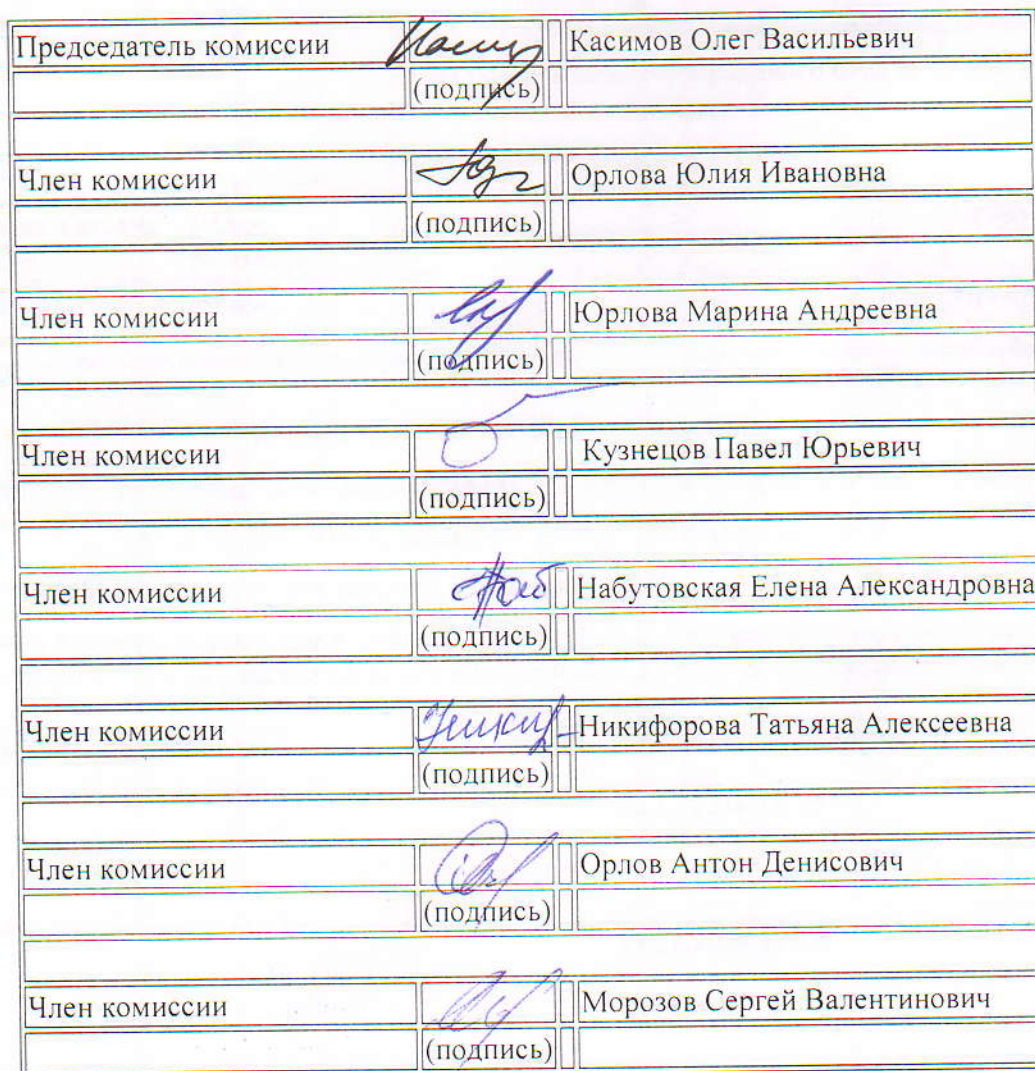 Председатель комиссии Касимов Олег Васильевич
(подпись)
Член комиссии Орлова Юлия Ивановна
(подпись)
Член комиссии Юрлова Марина Андреевна
(подпись)
Член комиссии Кузнецов Павел Юрьевич
(подпись)
Член комиссии Набутовская Елена Александровна
(подпись)
Член комиссии Никифорова Татьяна Алексеевна
(подпись)
Член комиссии Орлов Антон Денисович
(подпись)
Член комиссии Морозов Сергей Валентинович
(подпись)